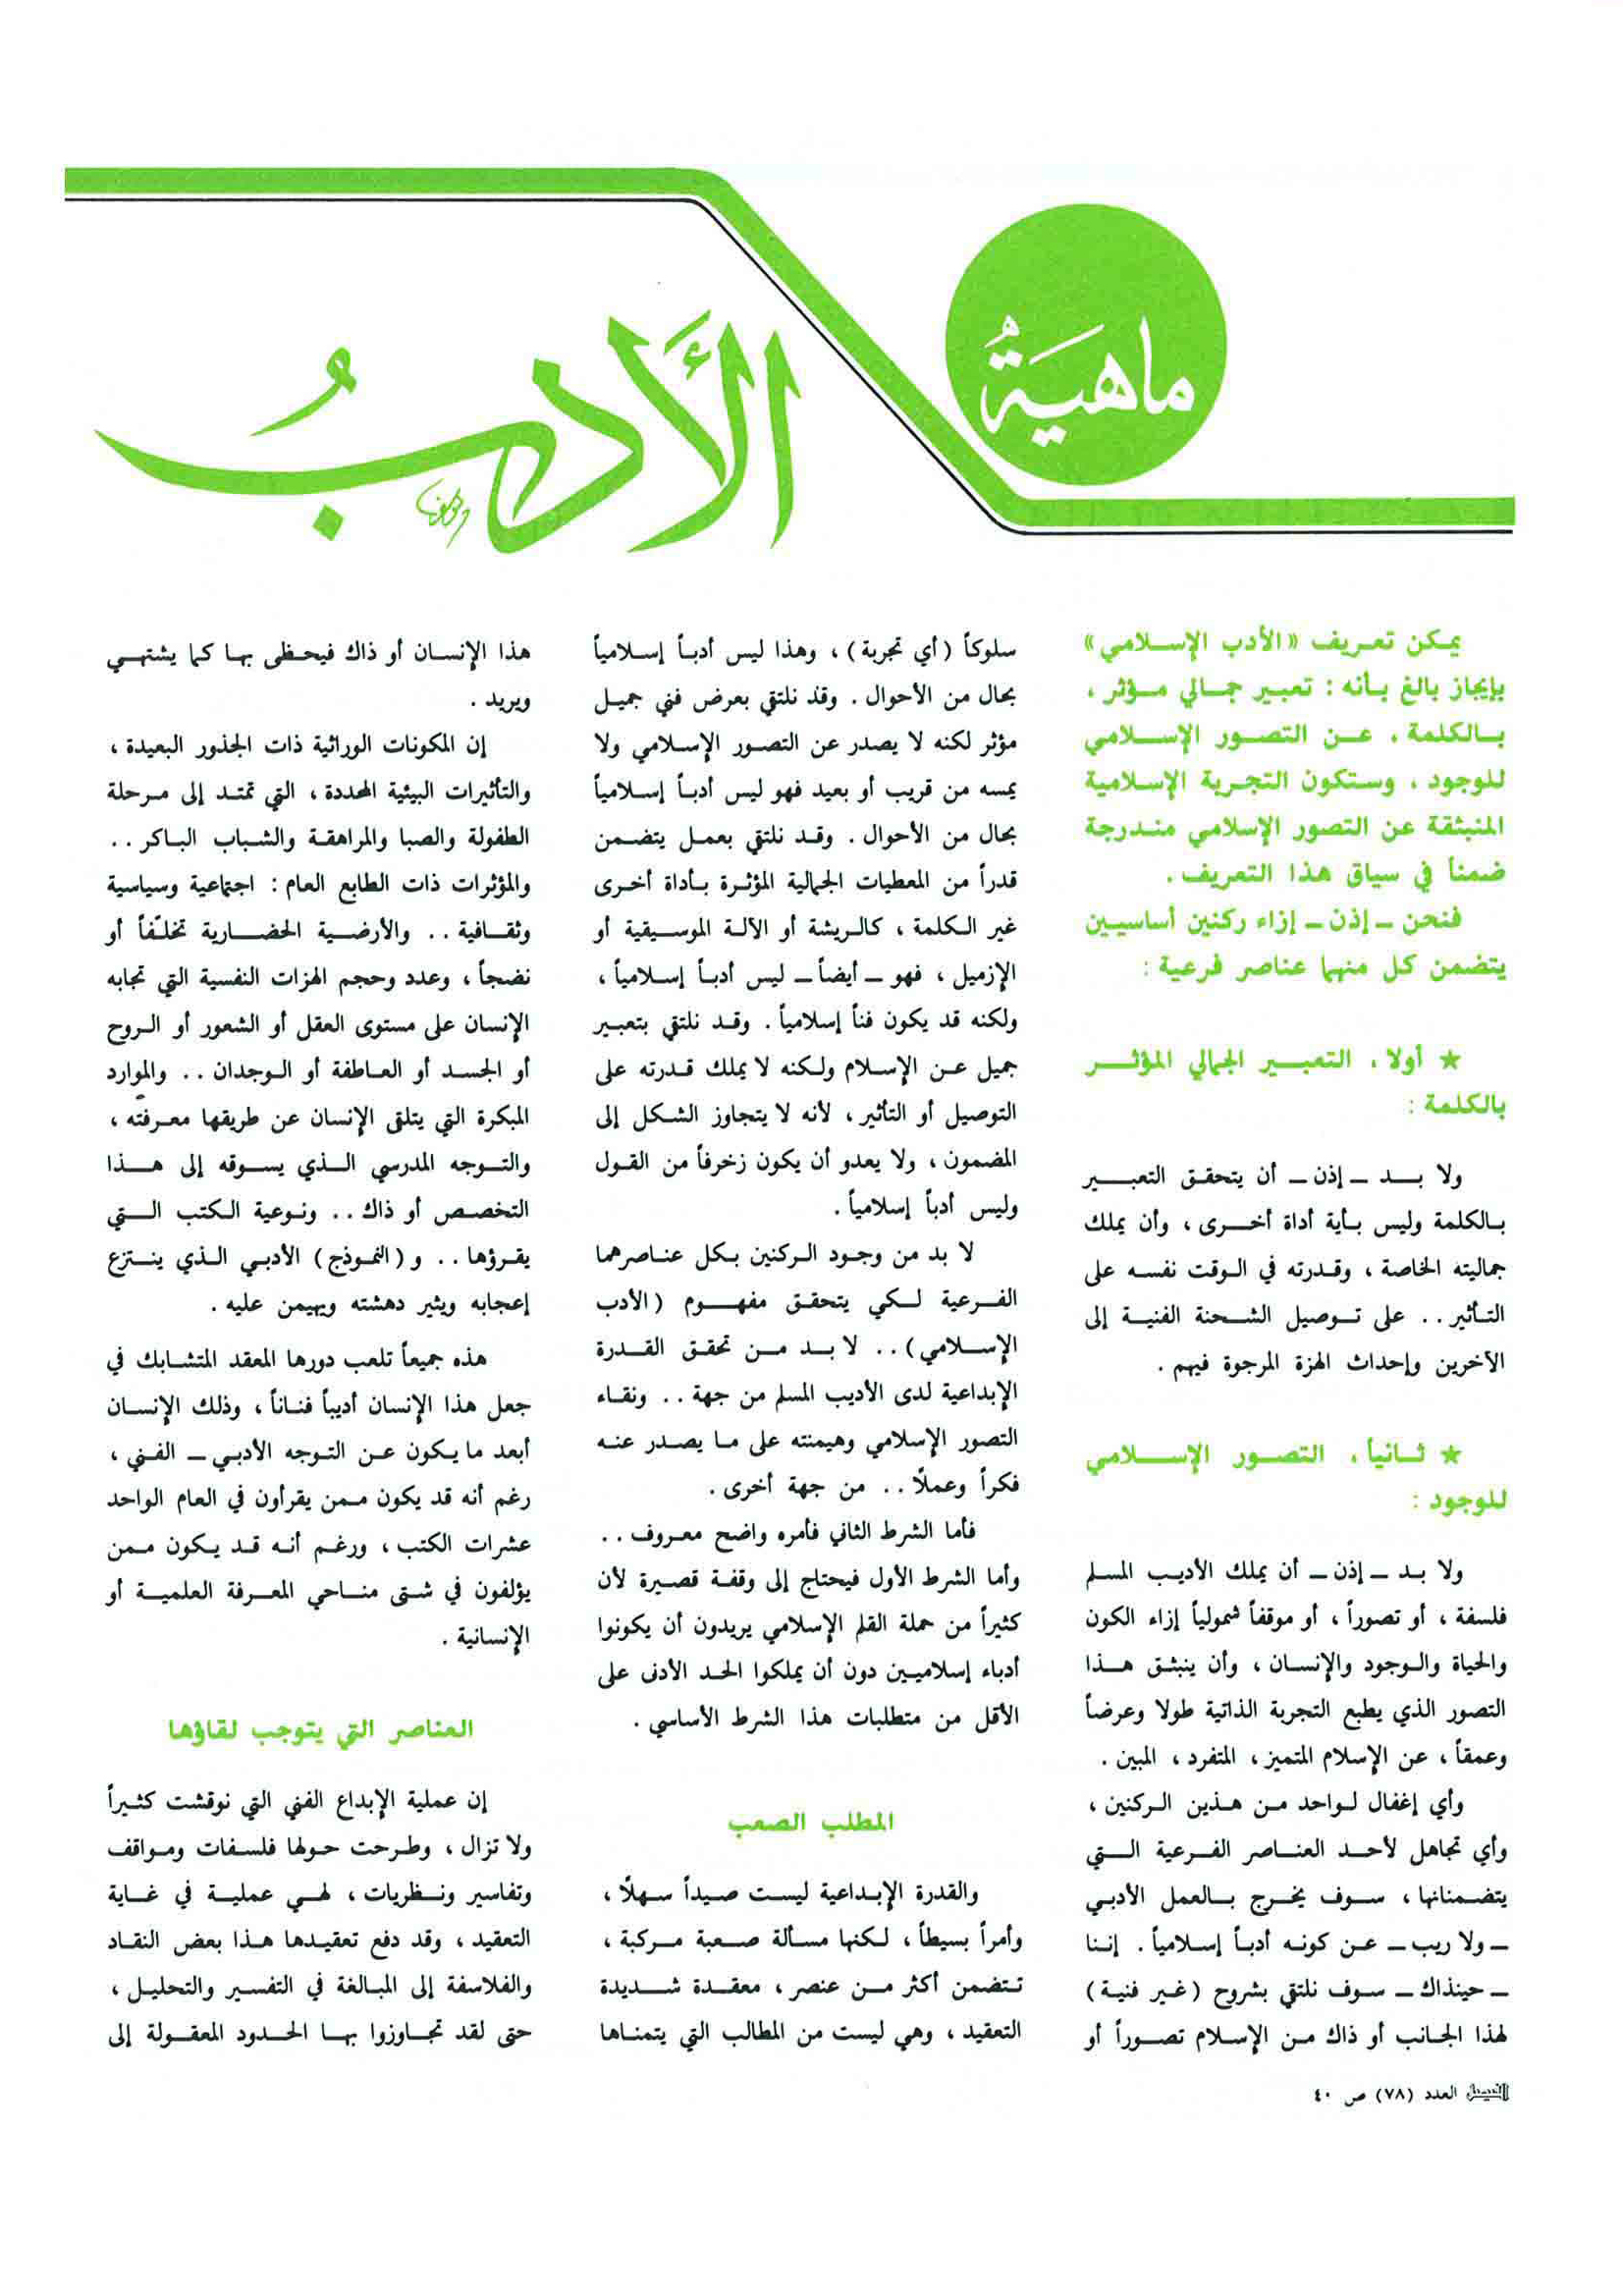 ماهيَةُ
الأَدبُ
يمكن تعريف «الأدب الإسلامي»
بإيجاز بالغ بأنه : تعبير جمالي مؤثر ،
بالكلمة ، عن التصور الإسلامي
للوجود ، وستكون التجربة الإسلامية
المنبثقة عن التصور الإسلامي مندرجة
ضمناً في سياق هذا التعريف .
فنحن – إذن – إزاء ركنين أساسيين
يتضمن كل منهما عناصر فرعية :
★ أولا ، التعبير الجمالي المؤثر
بالكلمة :
ولا بد – إذن – أن يتحقق التعبير
بالكلمة وليس بأية أداة أخرى ، وأن يملك
جماليته الخاصة ، وقدرته في الوقت نفسه على
التأثير .. على توصيل الشحنة الفنية إلى
الآخرين وإحداث الهزة المرجوة فيهم .
★ ثانياً ، التصور الإسلامي
للوجود :
ولا بد – إذن – أن يملك الأديب المسلم
فلسفة ، أو تصوراً ، أو موقفاً شمولياً إزاء الكون
والحياة والوجود والإنسان ، وأن ينبثق هذا
التصور الذي يطبع التجربة الذاتية طولا وعرضاً
وعمقاً ، عن الإسلام المتميز ، المتفرد ، المبين .
وأي إغفال لواحد من هذين الركنين ،
وأي تجاهل لأحد العناصر الفرعية التي
يتضمنانها ، سوف يخرج بالعمل الأدبي
– ولا ريب – عن كونه أدباً إسلامياً . إننا
– حينذاك – سوف نلتقي بشروح (غير فنية)
لهذا الجانب أو ذاك من الإسلام تصوراً أو
سلوكاً (أي تجربة) ، وهذا ليس أدباً إسلامياً
بحال من الأحوال . وقد نلتقي بعرض فني جميل
مؤثر لكنه لا يصدر عن التصور الإسلامي ولا
يمسه من قريب أو بعيد فهو ليس أدباً إسلامياً
بحال من الأحوال . وقد نلتقي بعمل يتضمن
قدراً من المعطيات الجمالية المؤثرة بأداة أخرى
غير الكلمة ، كالريشة أو الآلة الموسيقية أو
الإزميل ، فهو – أيضاً – ليس أدباً إسلامياً ،
ولكنه قد يكون فناً إسلامياً . وقد نلتقي بتعبير
جميل عن الإسلام ولكنه لا يملك قدرته على
التوصيل أو التأثير ، لأنه لا يتجاوز الشكل إلى
المضمون ، ولا يعدو أن يكون زخرفاً من القول
وليس أدباً إسلامياً .
لا بد من وجود الركنين بكل عناصرهما
الفرعية لكي يتحقق مفهوم (الأدب
الإسلامي) .. لا بد من تحقق القدرة
الإبداعية لدى الأديب المسلم من جهة .. ونقاء
التصور الإسلامي وهيمنته على ما يصدر عنه
فكراً وعملًا .. من جهة أخرى .
فأما الشرط الثاني فأمره واضح معروف ..
وأما الشرط الأول فيحتاج إلى وقفة قصيرة لأن
كثيراً من حملة القلم الإسلامي يريدون أن يكونوا
أدباء إسلاميين دون أن يملكوا الحد الأدنى على
الأقل من متطلبات هذا الشرط الأساسي .
المطلب الصعب
والقدرة الإبداعية ليست صيداً سهلًا ،
وأمراً بسيطاً ، لكنها مسألة صعبة مركبة ،
تتضمن أكثر من عنصر ، معقدة شديدة
التعقيد ، وهي ليست من المطالب التي يتمناها
هذا الإنسان أو ذاك فيحظى بها كما يشتهي
ويريد .
إن المكونات الوراثية ذات الجذور البعيدة ،
والتأثيرات البيئية المحددة ، التي تمتد إلى مرحلة
الطفولة والصبا والمراهقة والشباب الباكر ..
والمؤثرات ذات الطابع العام : اجتماعية وسياسية
وثقافية .. والأرضية الحضارية تخلّفاً أو
نضجاً ، وعدد وحجم الهزات النفسية التي تجابه
الإنسان على مستوى العقل أو الشعور أو الروح
أو الجسد أو العاطفة أو الوجدان .. والموارد
المبكرة التي يتلقى الإنسان عن طريقها معرفته ،
والتوجه المدرسي الذي يسوقه إلى هذا
التخصص أو ذاك .. ونوعية الكتب التي
يقرؤها .. و (النموذج) الأدبي الذي ينتزع
إعجابه ويثير دهشته ويهيمن عليه .
هذه جميعاً تلعب دورها المعقد المتشابك في
جعل هذا الإنسان أديباً فناناً ، وذلك الإنسان
أبعد ما يكون عن التوجه الأدبي – الفني ،
رغم أنه قد يكون ممن يقرأون في العام الواحد
عشرات الكتب ، ورغم أنه قد يكون ممن
يؤلفون في شتى مناحي المعرفة العلمية أو
الإنسانية .
العناصر التي يتوجب لقاؤها
إن عملية الإبداع الفني التي نوقشت كثيراً
ولا تزال ، وطرحت حولها فلسفات ومواقف
وتفاسير ونظريات ، لهي عملية في غاية
التعقيد ، وقد دفع تعقيدها هذا بعض النقاد
والفلاسفة إلى المبالغة في التفسير والتحليل ،
حتى لقد تجاوزوا بها الحدود المعقولة إلى
الفيصل العدد (٧٨) ص ٤٠